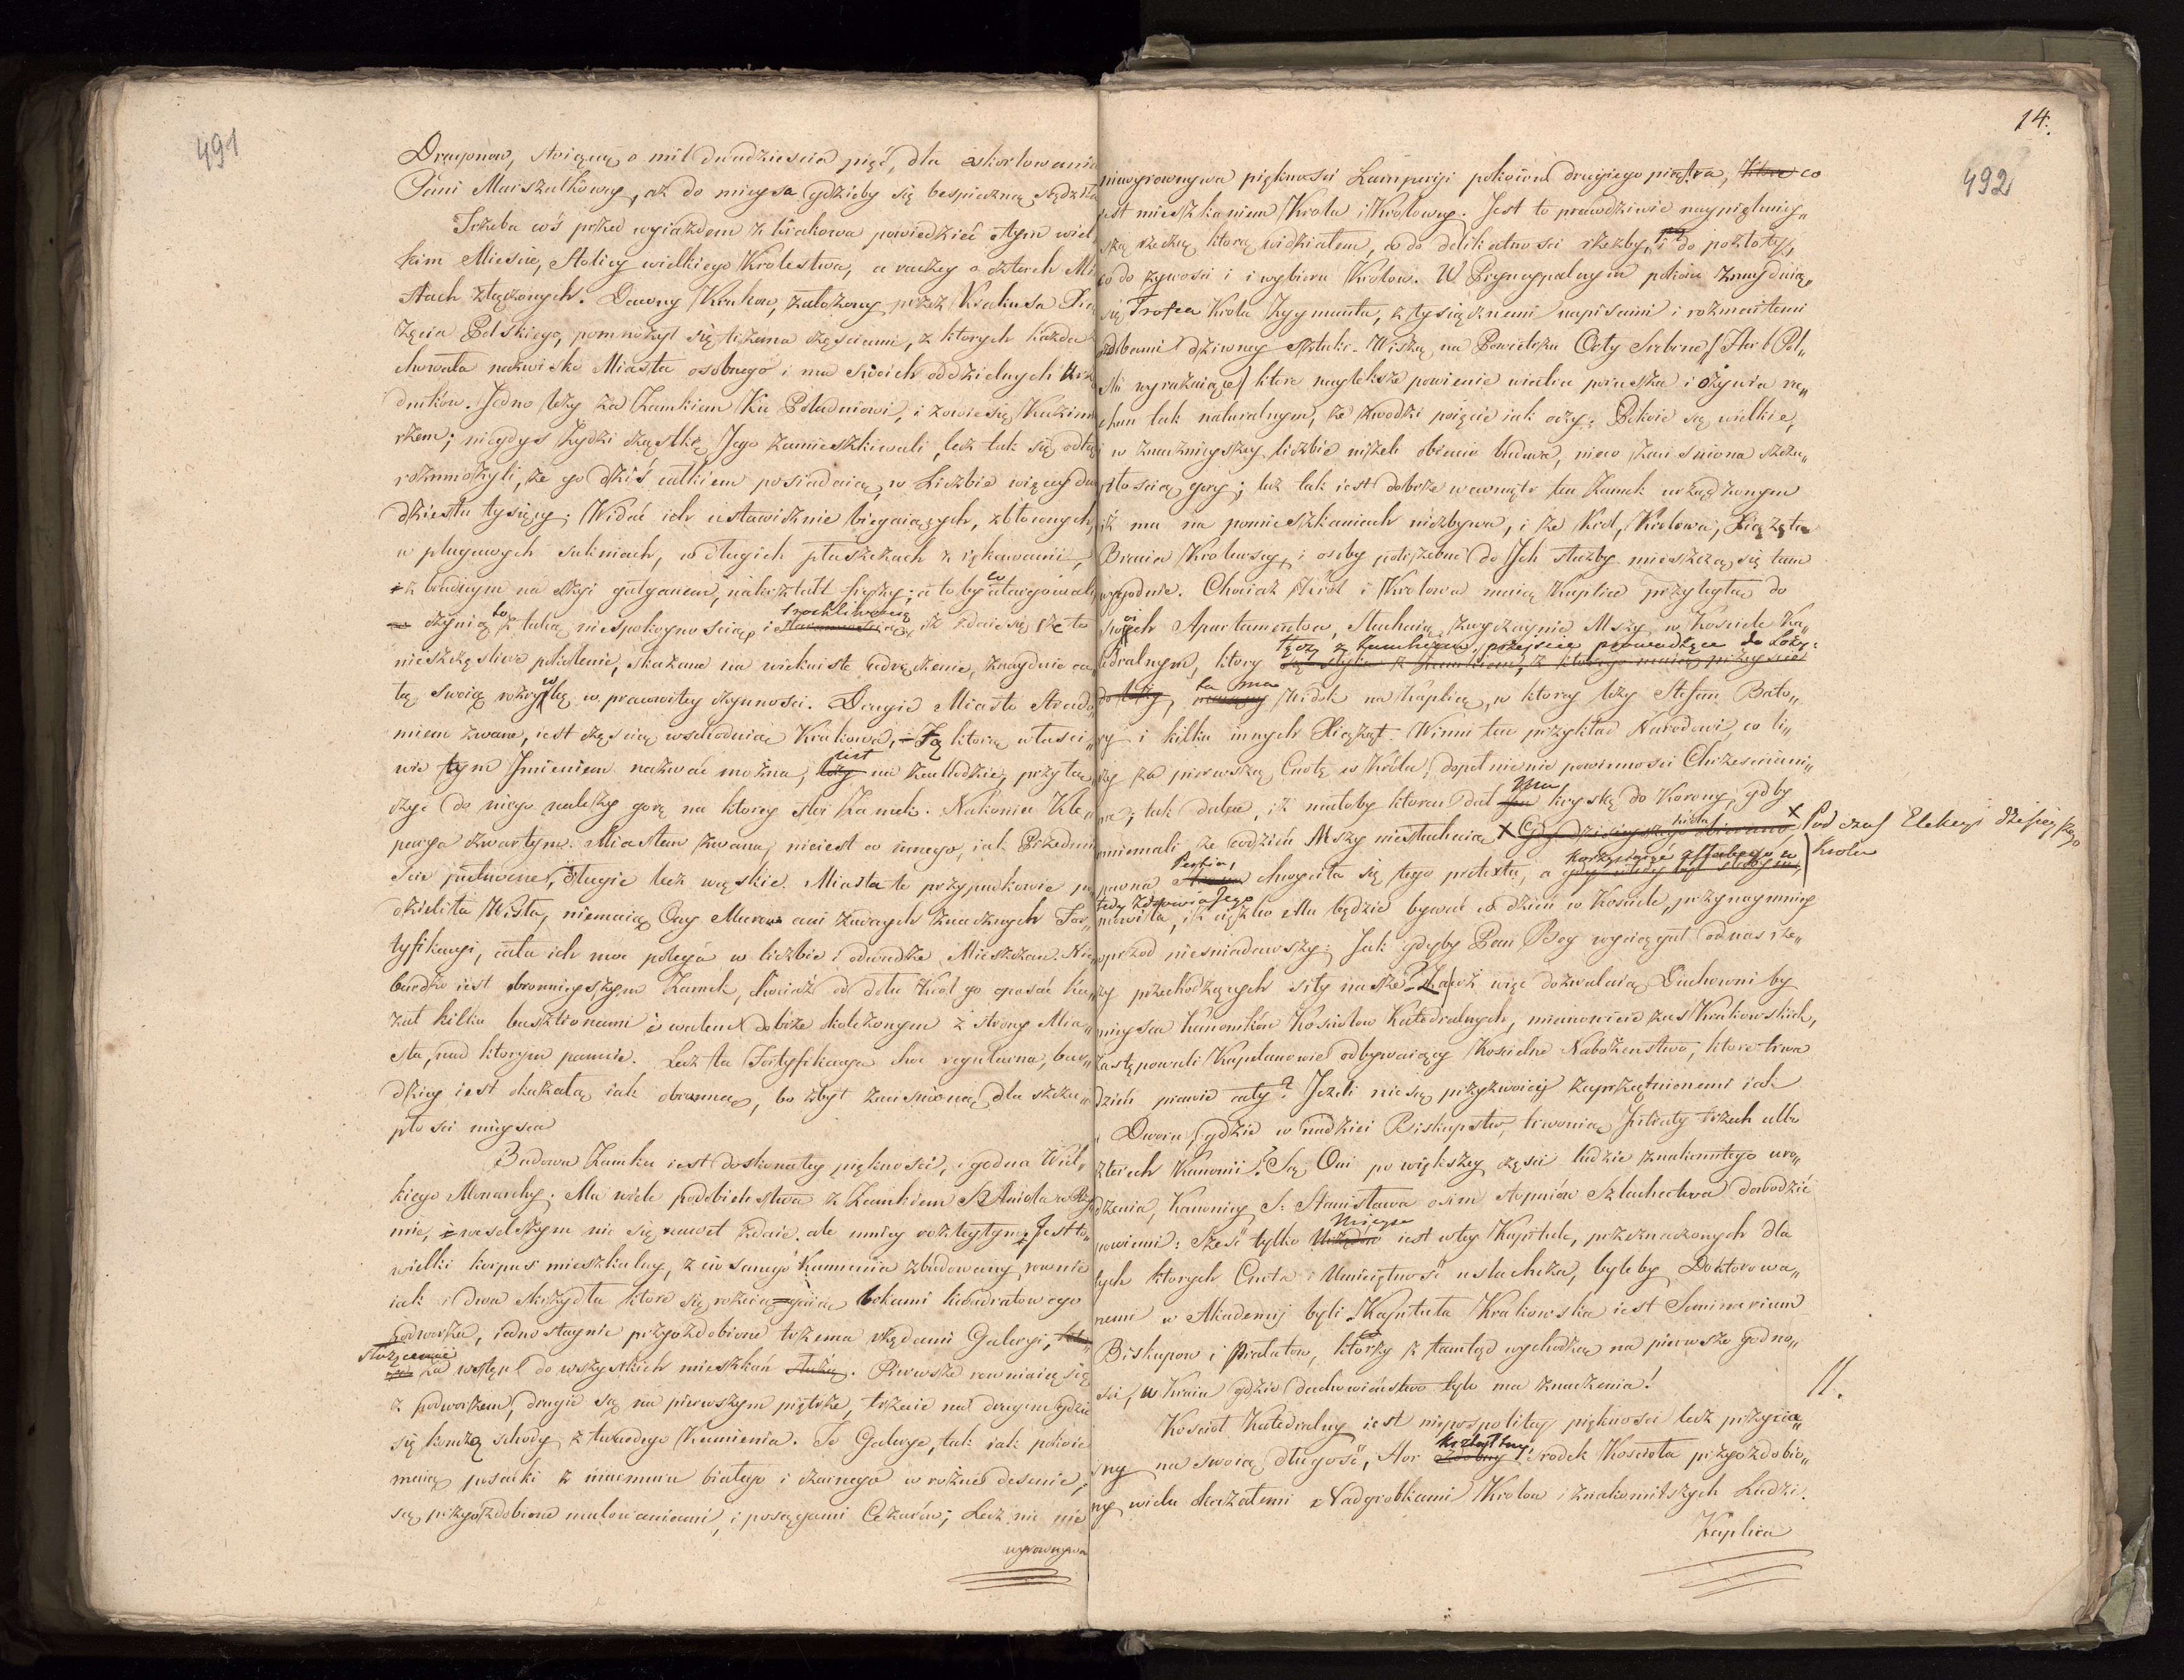 491
Dragonow, stoiącą o mil dwadzieścia pięć, dla eskortowania
Pani Marszałkowey, aż do mieysca gdzieby się bespieczną sądziła
Trzeba coś przed wyiazdem z Krakowa powiedzieć o tym wiel
kim Mieście, Stolicy wielkiego Krolestwa, a raczey o czterech Mia
stach złączonych. Dawny Krakow, założony przez Krakusa Xią
żęcia Polskiego, pomnożył się trzema częściami, z ktorych każda
chowała nazwisko Miasta osobnego i ma swoich oddzielnych Urzę
dników. Jedno leży za Zamkiem ku Południowi, i zowie się Kazimi
rzem; niegdyś Żydzi cząstkę Jego zamieszkiwali, lecz tak się odtąd
rozmnożyli, że go dziś całkiem posiadaią, w Liczbie więcey dwu
dziestu tysięcy; Widać ich ustawicznie biegaiących, zbłoconych,
w plugawych sukniach, w długich płaszczach z rękawami,
z brudnym na szyi gałganem, nakształt fryzki; a to by co utargowali
czynią to z taką niespokoynością, i troskliwością iż zdaie się że to
nieszczęśliwe pokolenie, skazane na wiekuiste udręczenie, znayduie ca
łą swoią rozrywkę w pracowitey czynności. Drugie Miasto Strado
miem zwane, iest częścią wschodnią Krakowa, Tą ktorą właści
wie tym Imieniem nazwać można, jest na Zachodzie, przyłą
czyć do niego należy gorę na ktorey stoi Zamek. Nakoniec Kle
parz czwartym Miastem zwany, nie iest co innego, iak Przedmie
ście budowne, długie lecz wązkie. Miasta te przypadkowie po
dzieliła Wisła, niemaią Ony Murow ani żadnych znacznych For
tyfikacyi, cała ich moc polega w liczbie i odwadze Mieszczan. Nie
bardzo iest obronnieyszym Zamek, chociaż od dołu Krol go opasać ka
zał kilku basztionami i wałem dobrze dołożonym z strony Mia
sta, nad ktorym panuie. Lecz ta Fortyfikacya choć regularna, bar
dziey iest okazałą iak obronną, bo zbyt zacieśnioną dla szczu
płości mieysca
Budowa Zamku iest doskonałey piękności, i godna Wiel
kiego Monarchy. Ma wiele podobieństwa z Zamkiem S. Anioła w Rzy
mie, weselszym mi się nawet zdaie, ale mniey rozległym. Jest to
wielki korpus mieszkalny, z ciosanego kamienia zbudowany, rownie
iak i dwa skrzydła ktore się rozciągaią bokami kwadratowego
podworza, iednostaynie przyozdobione trzema rzędami Galeryi,
służącemi za wstęp do wszystkich mieszkań. Pierwsze rownaią się
z podworzem, drugie są na pierwszym piętrze, trzecie na drugim gdzie
się kończą schody z twardego kamienia. Te Galerye, tak iak pokoie
maią posadzki z marmuru białego i czarnego w rożne desenie;
są przyozdobione malowaniami, i posągami Cezarów; Lecz nic nie
wyrownywa

14.
492
niewyrownywa piękności Lamperyi pokoiow drugiego piętra, co
iest mieszkaniem Krola i Krolowey. Jest to prawdziwie naypięknie
szą rzeczą ktorą widziałem, co do delikatności rzezby, i co do pozłoty,
co do żywości i wyboru kolorow. W Pryncypalnym pokoiu znayduią
się Trofea Krola Zygmunta, z tysiącznemi napisami i rozmaitemi
ozdobami dziwney sztuki. Wiszą na Powietrzu Orły Srebrne (Herb Pol
ski wyrażaiące) ktore nayleksze powienie wiatru porusza i ożywia ru
chem tak naturalnym, że zwodzi poięcie iak oczy. Pokoie są wielkie,
i w znacznieyszey liczbie niżeli obiecuie budowa, nieco zacieśniona szczu
płością gory; lecz tak iest dobrze wewnątr ten Zamek urządzonym
iż mu na pomieszkaniach niezbywa, i że Krol, Krolowa, Xiążęta
Bracia Krolewscy, i osoby potrzebne do Ich służby mieszczą się tam
wygodnie. Chociaż Krol i Krolowa maią Kaplice przyległą do
swoich Apartamentow, słuchaią zwyczaynie Mszy w Kościele Ka
tedralnym, ktory łączy z Zamkiem, przejscie prowadzące do Loży,
ta ma Widok na Kaplicę, w ktorey leży Stefan Bato
ry i kilku innych Xiążąt. Winni ten przykład Narodowi, co li
czy za pierwszą Cnotę w Krolu, dopełnienie powinności Chrześciiańs
ka; tak dalece, iż małoby ktoren dał Jemu kryskę do Korony, gdyby
mniemali że codzień Mszy niesłucha × Pod czas Elekcyi dzisieyszego
Krola
pewna Partia, chwyciła się tego pretextu, a korzystając z słabego w
tedy zdrowia Jego mowiła, iż ciężko Mu będzie bywać co dzień w Kościele, przynaymniey
wprzod nieśniadawszy; Jak gdyby Pan Bog wyciągał od nas rze
czy przechodzących siły nasze? Zacoż więc dozwalaią Duchowni by
mieysca Kanonikow Kościołow Katedralnych, mianowicie zas Krakowskich,
zastępowali Kapelanowie odbywaiący Kościelne Nabożeństwo, ktore trwa
dzień prawie cały? Jeżeli nie są przyzwoiciey zaprzątnionemi iak
u Dworu, gdzie w nadziei Biskupstw, trwonią Intraty trzech albo
czterech Kanonii? Są Oni po większey części ludzie znakomitego uro
dzenia, Kanonicy S: Stanisława osim stopniow Szlachectwa dowodzić
powinni; Sześć tylko Mieysc iest w tey Kapitule, przeznaczonych dla
tych ktorych Cnota i Umieiętność uszlachcza, byleby Doktorowa
nemi w Akademij byli. Kapituła Krakowska iest Seminarium
Biskupow i Prałatow, ktorzy z tamtąd wychodzą na pierwsze godno
ści, w Kraiu gdzie duchowieństwo tyle ma znaczenia!
11.
Kościoł Katedralny iest niepospolitey piękności lecz przycia
sny na swoią długość, Hor kształtny, środek Kościoła przyozdobio
ny wielu okazałemi Nadgrobkami Krolow i znakomitszych Ludzi.
Kaplica